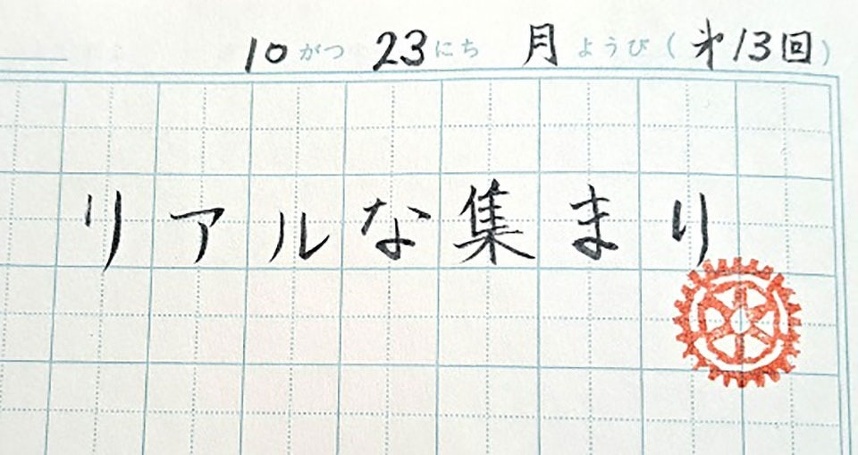 10がつ 23にち 月ようび(㐧13回)
リアルな集まり